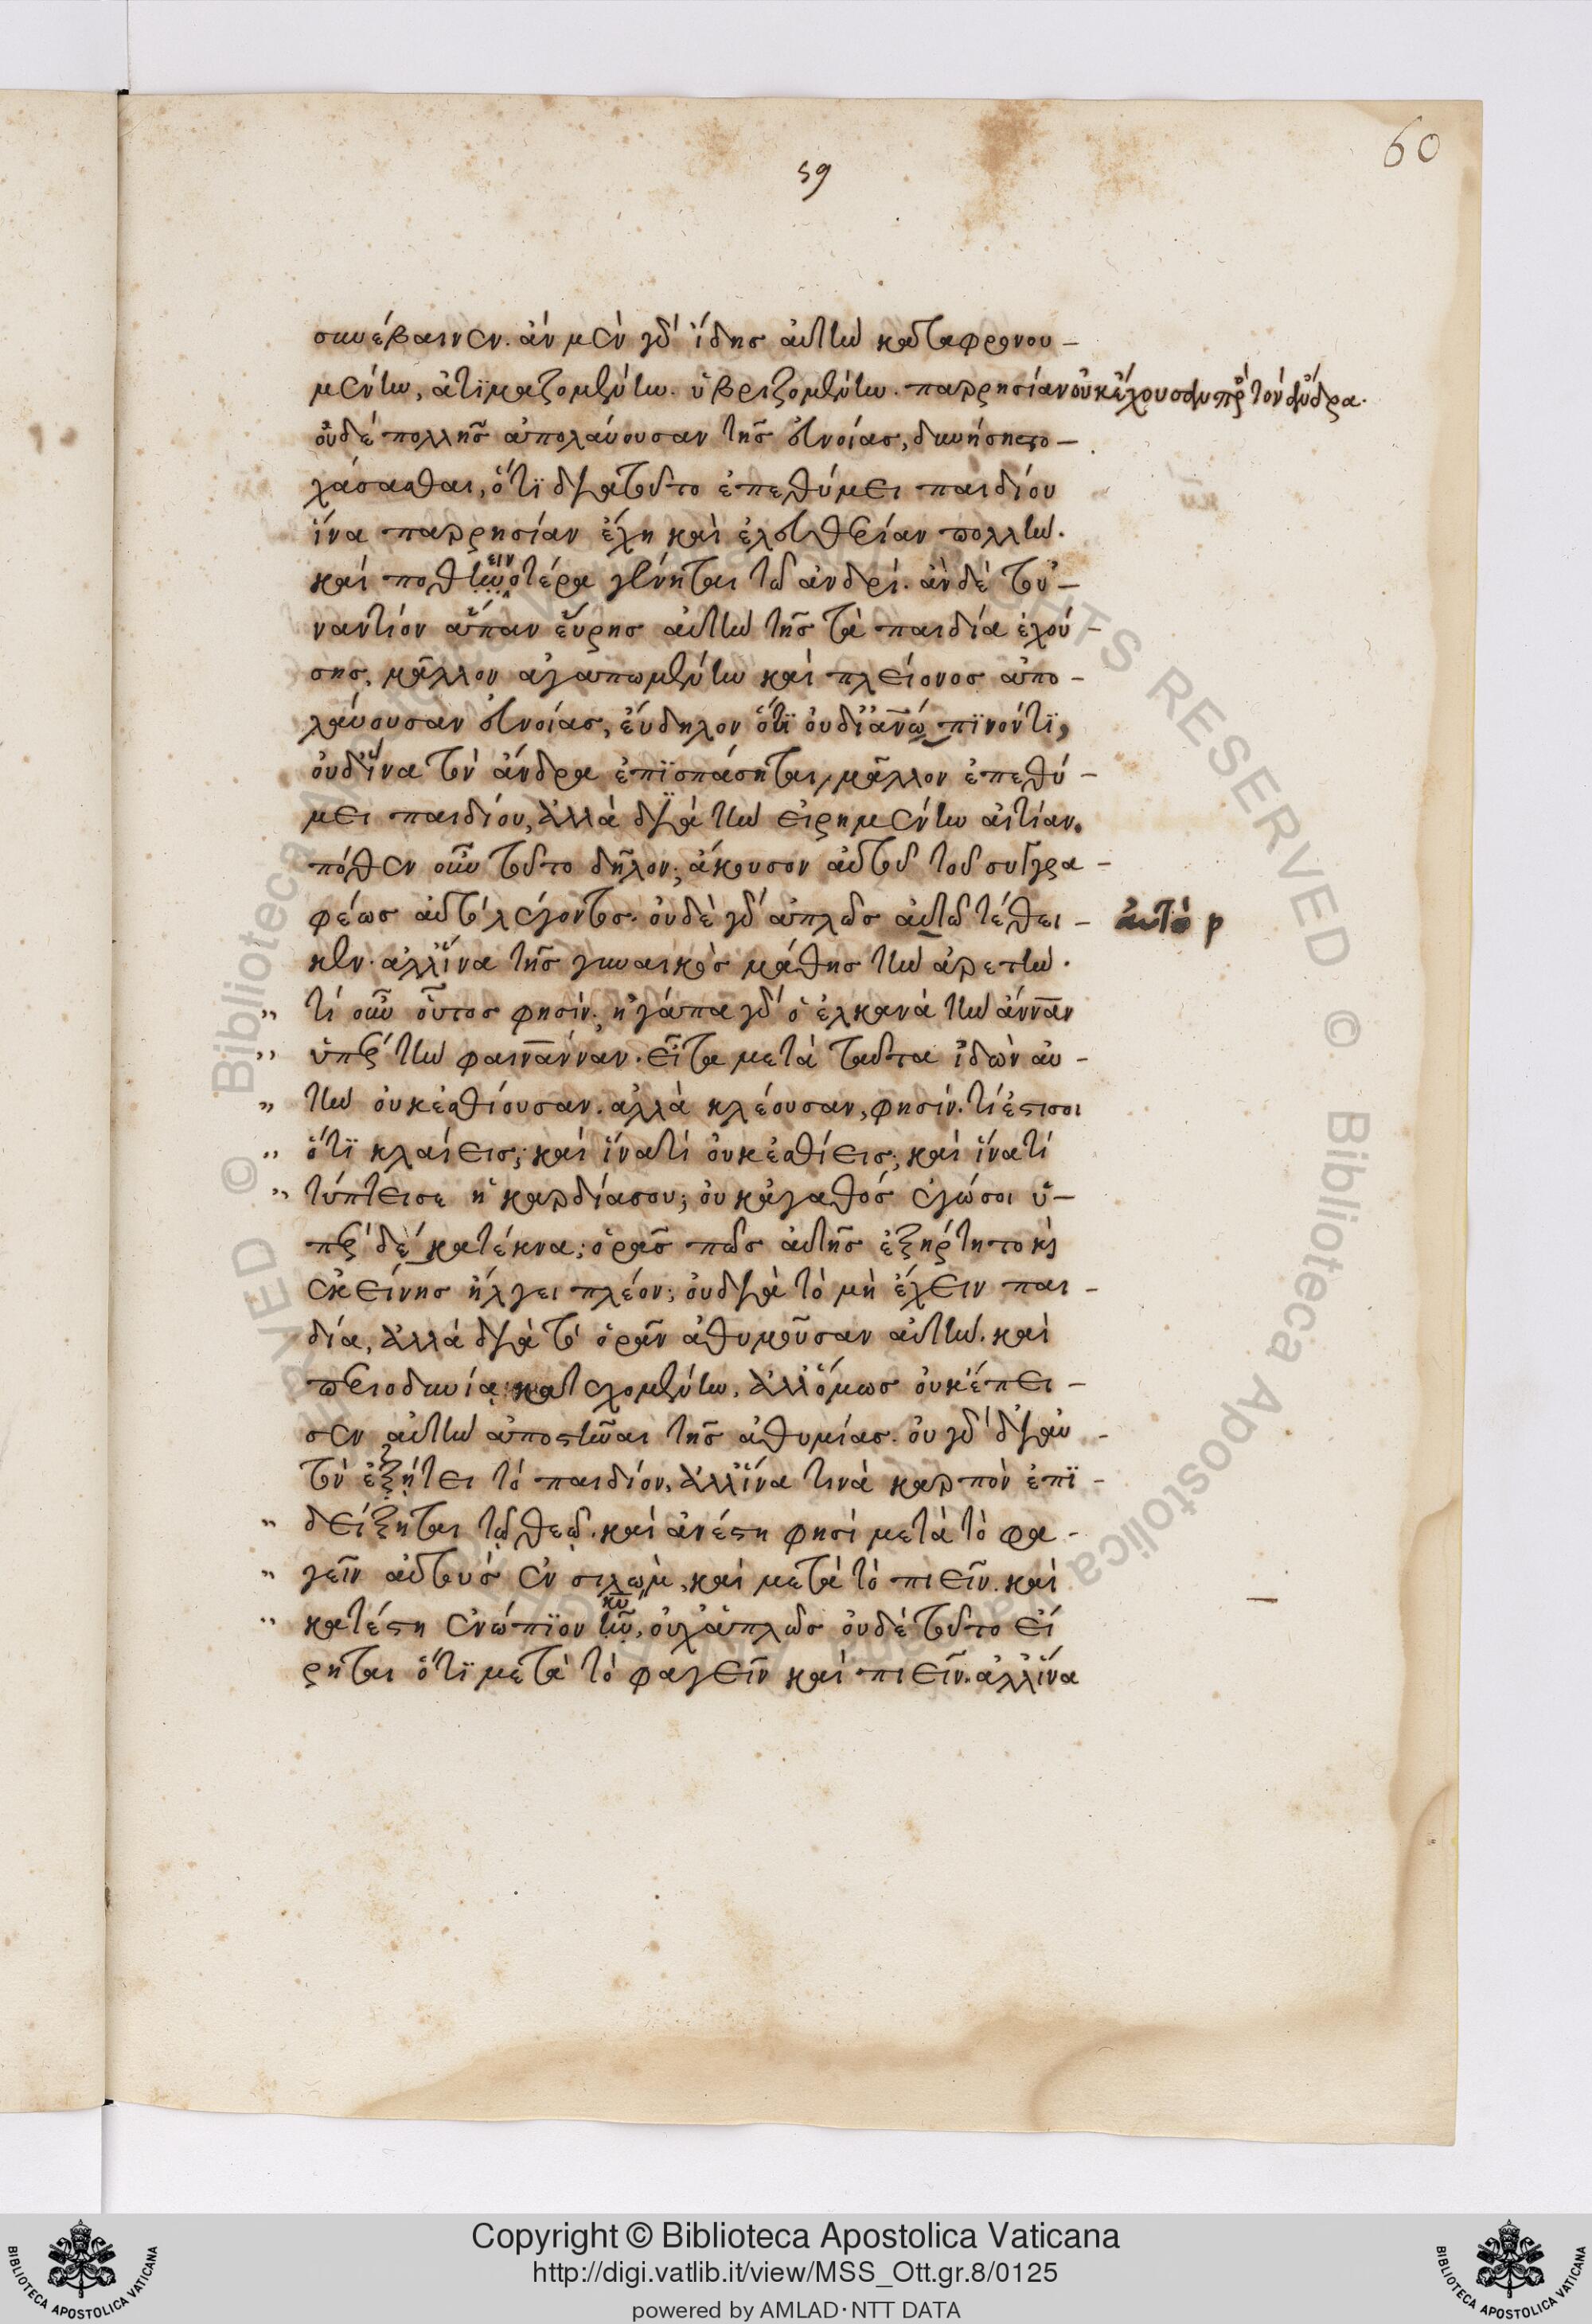 60
59
συνέβαινεν. ἂν μὲν γὰρ ἴδης αὐτὴν καταφρονου-
μένην, ἀτιμαζομένην. ὑβριζομένην. παρρησίαν οὐκ ἔχουσαν πρὸς τὸν ἄνδρα.
οὐδὲ πολλῆς ἀπολαύουσαν τῆς εὐνοίας, δυνήση στο-
χάσασθαι, ὅτι διὰ τοῦτο ἐπεθύμει παιδίου
ἵνα παρρησίαν ἔχη καὶ ἐλευθερίαν πολλήν.
καὶ ποθεινοτέρα γένηται τῶ ἀνδρί. ἂν δὲ τοὐ-
ναντίον ἅπαν εὕρης αὐτὴν τῆς τὰ παιδία ἐχού-
σης, μᾶλλον ἀγαπωμένην καὶ πλείονος ἀπο-
λαύουσαν εὐνοίας, εὔδηλον ὅτι οὐδ
οὐδ ἵνα τὸν ἄνδρα ἐπισπάσηται, μᾶλλον ἐπεθύ-
μει παιδίου, ἀλλὰ διὰ τὴν εἰρημένην αἰτίαν.
πόθεν οὖν τοῦτο δῆλον; ἄκουσον αὐτοῦ τοῦ συγγρα-
φέως αὐτὸ λέγοντος. οὐδὲ γὰρ ἁπλῶς αὐτῶ τέθει-
αὐτὸ
κεν. ἀλλ ἵνα τῆς γυναικὸς μάθης τὴν ἀρετήν.
τί οὖν οὗτος φησίν; ἠγάπα γὰρ ὁ ἐλκανὰ τὴν ἄνναν
ὑπὲρ τὴν φαινάνναν. εἶτα μετὰ ταῦτα ἰδὼν αὐ-
τὴν οὐκ ἐσθίουσαν. ἀλλὰ κλέουσαν, φησίν. τί ἐστι σοι
ὅτι κλαίεις; καὶ ἵνα τί οὐκ ἐσθίεις; καὶ ἵνα τί
τύπτει σε ἡ καρδία σου; οὐκ ἀγαθός ἐγώ σοι ὑ-
πὲρ δέκα τέκνα; ὁρᾶς πῶς αὐτῆς ἐξήρτητο καὶ
ἐκείνης ἤλγει πλέον; οὐ διὰ τὸ μὴ ἔχειν παι-
δία, ἀλλὰ διὰ τὸ ὁρᾶν ἀθυμοῦσαν αὐτήν. καὶ
περιοδυνία κατεχομένην, ἀλλ ὅμως οὐκ ἔπει-
σεν αὐτὴν ἀποστῆναι τῆς ἀθυμίας. οὐ γὰρ δι αὐ-
τὸν ἐζήτει τὸ παιδίον, ἀλλ ἵνα τινὰ καρπὸν ἐπι-
δείξηται τῶ θεῶ. καὶ ἀνέστη φησὶ μετὰ τὸ φα-
γεῖν αὐτοὺς ἐν σιλωμ, καὶ μετὰ τὸ πιεῖν. καὶ
κατέστη ἐνώπιον κυ, οὐχ ἁπλῶς οὐδὲ τοῦτο εἴ
ρηται ὅτι μετὰ τὸ φαγεῖν καὶ πιεῖν. ἀλλ ἵνα
Copyright © Biblioteca Apostolica Vaticana
http://digi.vatlib.it/view/MSS_Ott.gr.8/0125
powered by AMLAD·NTT DATA
BIBLIOTECA APOSTOLICA VATICANA
BIBLIOTECA APOSTOLICA VATICANA